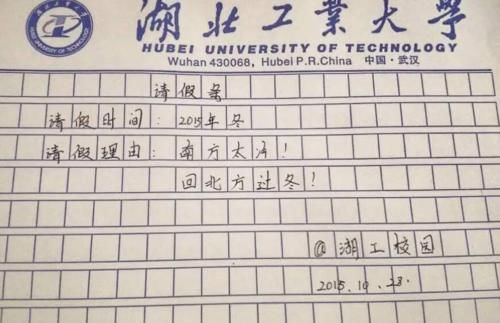 湖北工業大學
HUBEI UNIVERSITY OF TECHNOLOGY
Wuhan 430068, Hubei P.R.China 中国·武汉
请假条
请假时间：2015年冬
请假理由：南方太冷！
回北方过冬！
@湖工校园
2015.10.28.